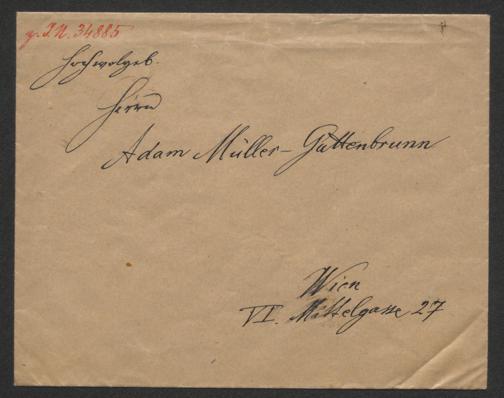 z. I.N. 34885
Hochwolgeb.
Herrn
Adam Müller-Guttenbrunn
Wien
VI. Mittelgasse 27